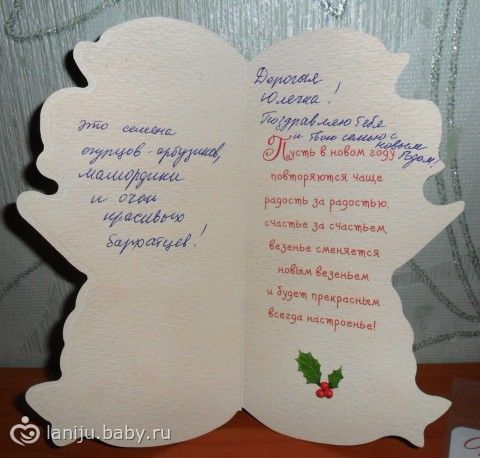 это семена
огурцов-арбузиков,
мамордики
и очен
красивых
бархатцев!
Дорогая
Юлечка!
Поздравляю тебя
и твою семью с
новым
Годом!
Пусть в новом году
повторяются чаще
радость за радостью,
счастье за счастьем,
везенье сменяется
новым везеньем
и будет прекрасным
всегда настроенье!
laniju.baby.ru